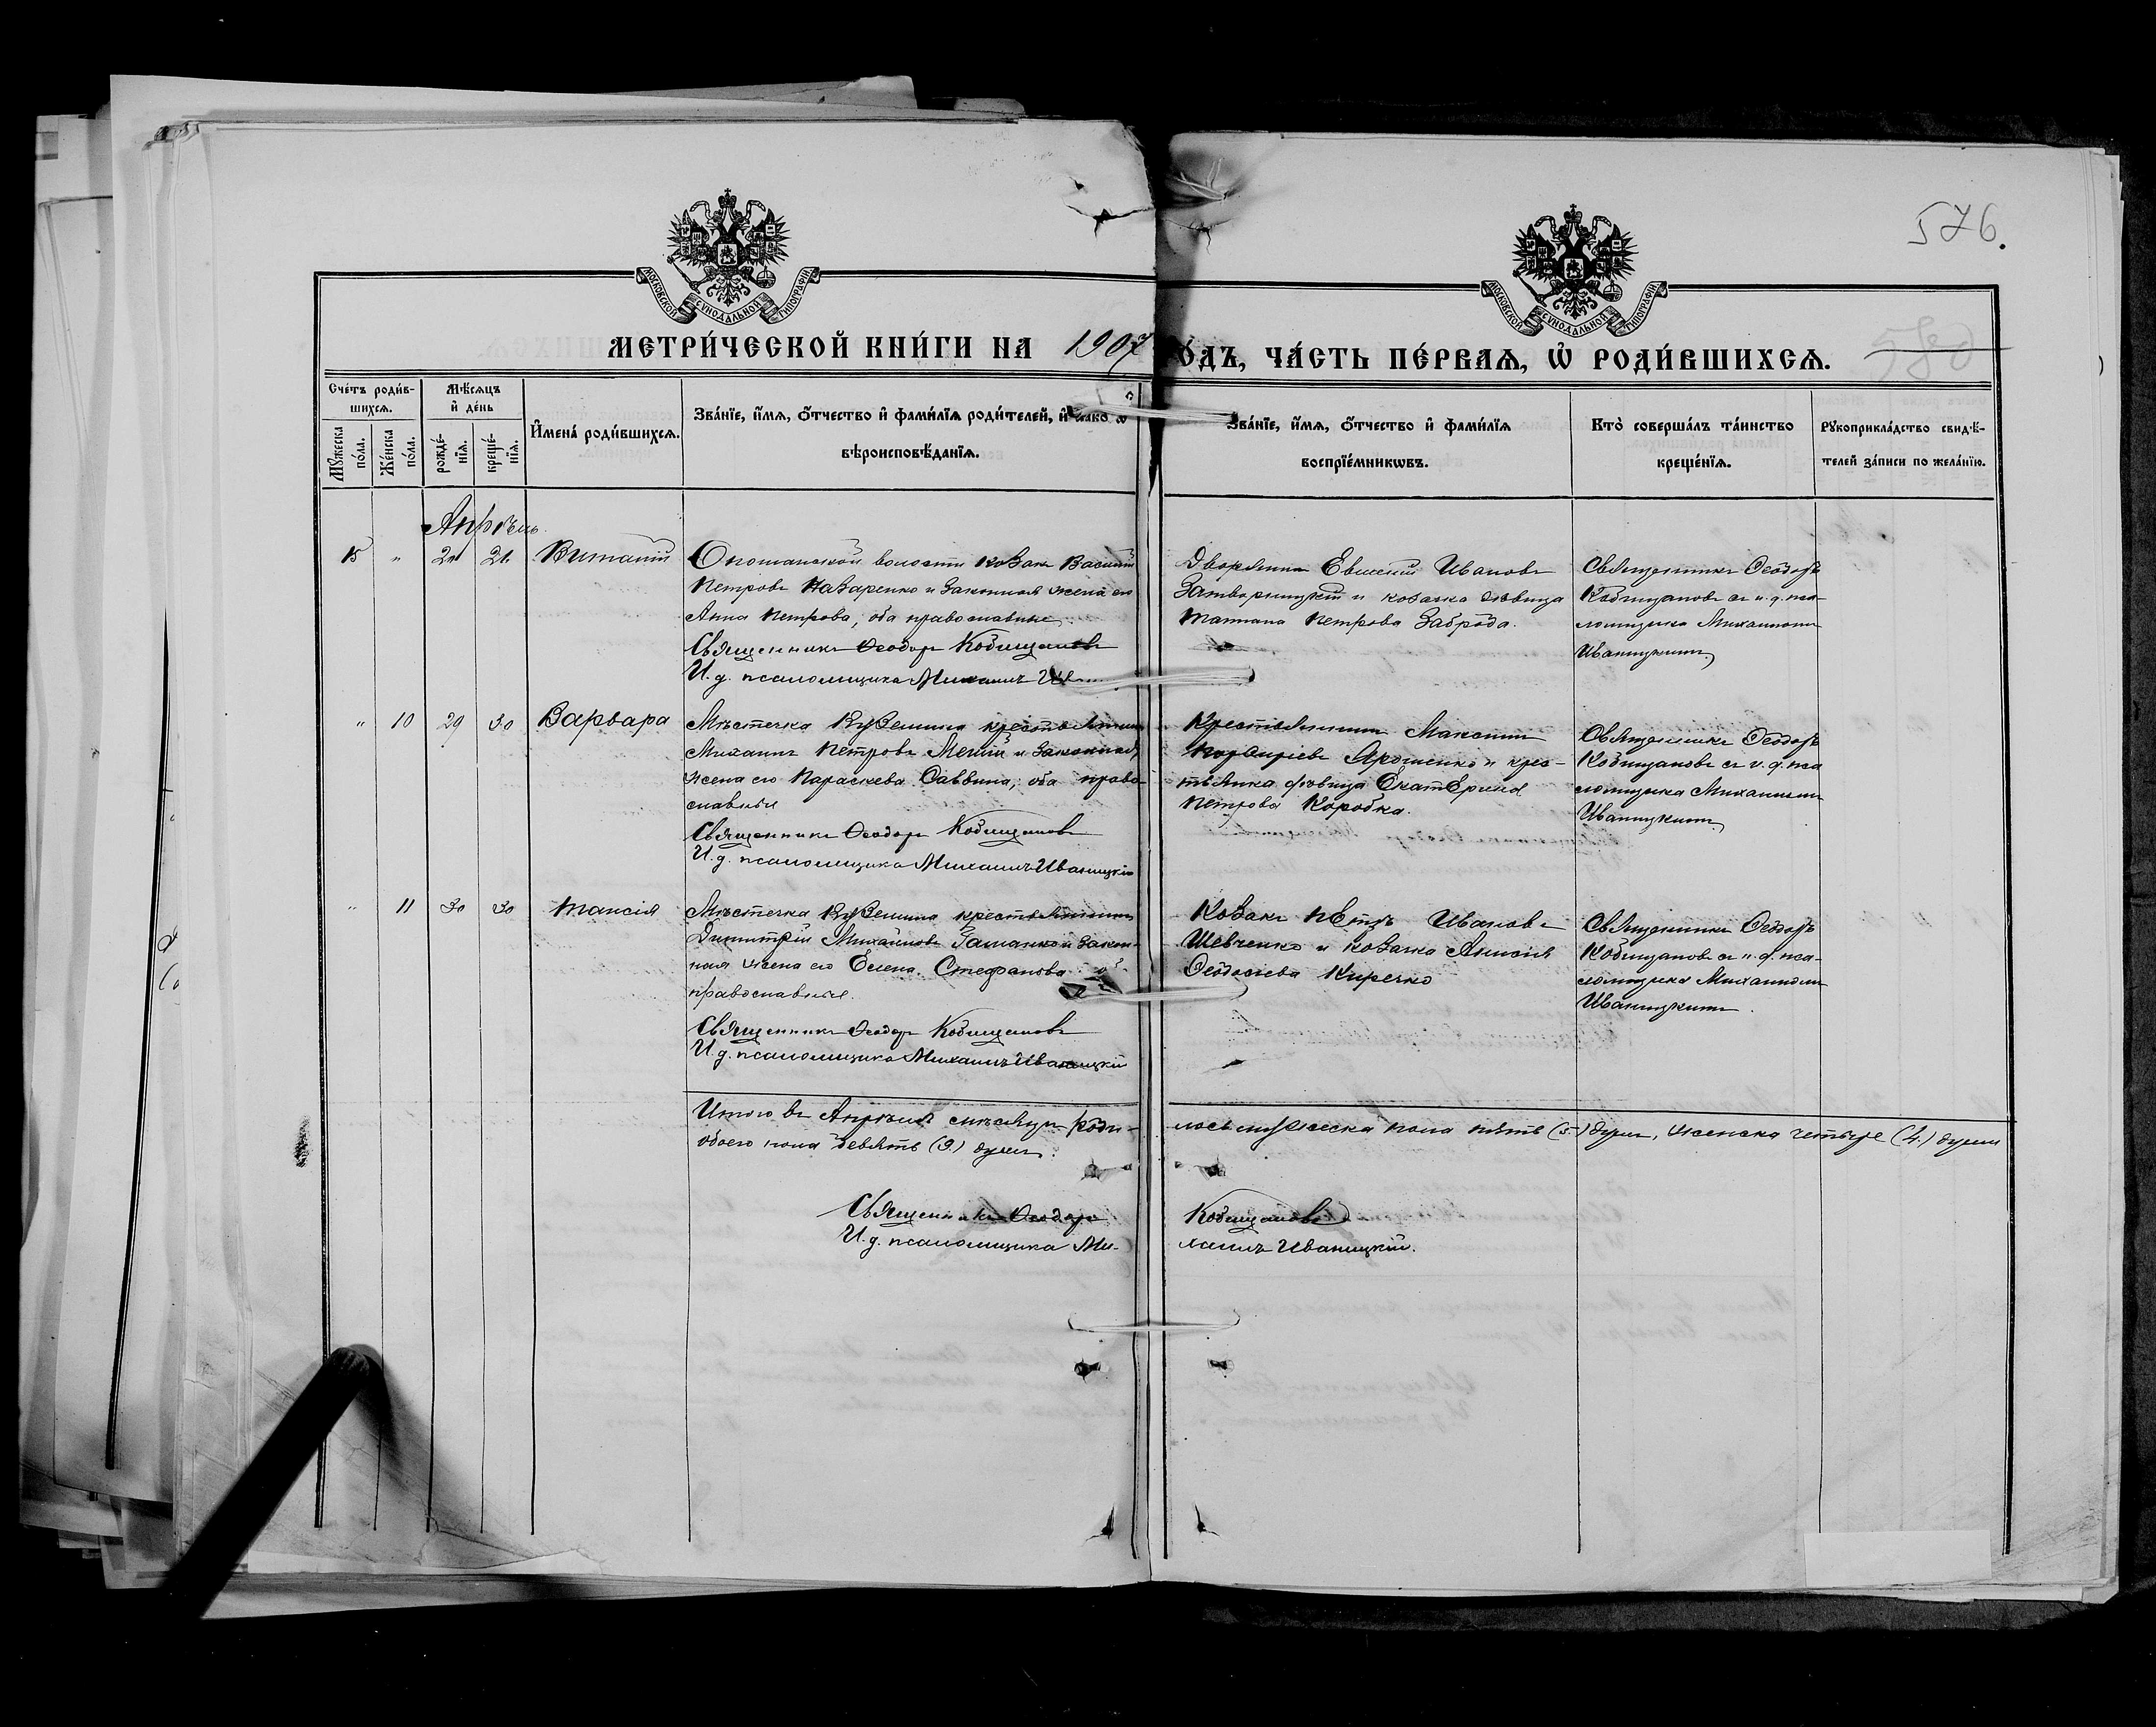 576.
МОСКОВСКОЙ СѴНОДАЛЬНОЙ ТИПОГРАФІИ
МОСКОВСКОЙ СѴНОДАЛЬНОЙ ТИПОГРАФІИ
580
МЕТРИ́ЧЕСКОЙ КНИ́ГИ НА 1907
О́ДЪ, ЧА́СТЬ ПЕ́РВАѦ, Ѡ҆ РОДИ́ВШИХСѦ.
Сче́тъ роди́в-
шихсѧ.
Мꙋ́жеска по́ла.
Же́нска по́ла.
Мѣ́сѧцъ
и҆ де́нь
рожде́-
нїѧ.
креще́-
нїѧ.
И҆мена̀ роди́вшихсѧ.
Зва́нїе, и҆́мѧ, ѻ҆́тчество и҆ фами́лїѧ роди́телей, и҆
вѣроисповѣ́данїѧ.
Зва́нїе, и҆́мѧ, ѻ҆́тчество и҆ фами́лїѧ
воспрїе́мникѡвъ.
Кто̀ соверша́лъ та́инство
креще́нїѧ.
Рꙋкоприкла́дство свидѣ́-
телей за́писи по жела́нїю.
Апрѣль.
15 " 21 Виталій
Опошанской волости козакъ Василій
Петровъ Назаренко и законная жена его
Анна Петрова, оба православные.
Священникъ Ѳеодоръ Кобищановъ
И. д. псаломщика Михаилъ
Дворянинъ Евгеній Ивановъ
и козачка дѣвица
Татіана Петрова Заброда.
Священникъ Ѳеодоръ
Кобищановъ съ и. д. пса-
ломщика Михаиломъ
Иваницкимъ.
" 10 29 30 Варвара
Мѣстечка Куземина крестьянинъ
Михаилъ Петровъ и законная
жена его Параскева Саввина, оба право-
славные
Священникъ Ѳеодоръ Кобищановъ
И. д. псаломщика Михаилъ Иваницкій
Крестьянинъ Максимъ
Порфиріевъ Ярошенко и крес-
тьянка дѣвица Екатерина
Петрова Коробка.
Священникъ Ѳеодоръ
Кобищановъ съ и. д. пса
ломщика Михаиломъ
Иваницкимъ.
" 11 30 30 Таисія
Мѣстечка Куземина крестьянинъ
Димитрій Михайловъ и закон-
ная жена его Елена Стефанова
православные.
Священникъ Ѳеодоръ Кобищановъ
И. д. псаломщика Михаилъ Иваницкій
Козакъ Петръ Ивановъ
Шевченко и козачка Анисія
Ѳеодосіева Киречко
Священникъ Ѳеодоръ
Кобищановъ съ и. д. пса-
ломщика Михаиломъ
Иваницкимъ.
Итого въ Апрѣлѣ мѣсяцѣ роди-
лось мужеска пола пять (5.) душъ, женска четыре (4.) души
обоего пола девять (9.) душъ.
Священникъ Ѳеодоръ Кобищановъ
И. д. псаломщика Михаилъ Иваницкій.